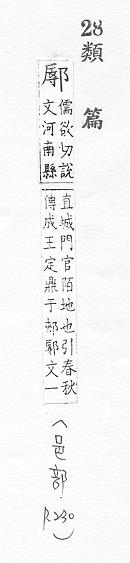 28 類篇
鄏
儒欲切說
文河南縣
直城門官陌地也引春秋
傳成王定鼎于郟鄏文一
(邑部. P.230)